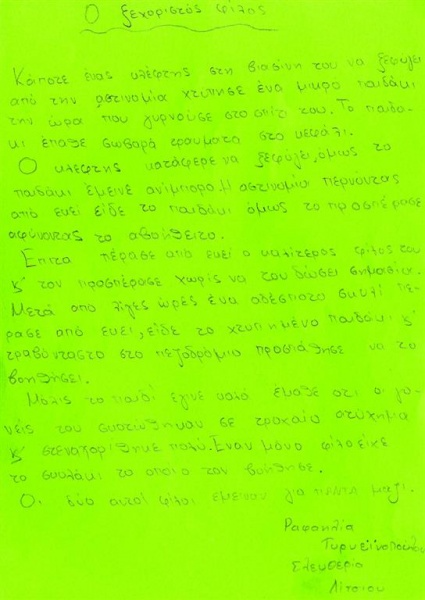 Ο ξεχοριστός φίλος
Κάποτε ένας κλέφτης στη βιασίνη του να ξεφύγει
από την αστινομία χτύπησε ένα μικρό παιδάκι
την ώρα που γυρνούσε στο σπίτι του. Το παιδά-
κι έπαθε σωβαρά τραύματα στο κεφάλι.
Ο κλέφτης κατάφερε να ξεφύγει, όμως το
παιδάκι έμεινε ανίμπορο. Η αστινομία περνόντας
από εκεί είδε το παιδάκι όμως το προσπέρασε
αφύνοντας το αβοήθειτο.
Έπιτα πέρασε από εκεί ο καλίτερος φίλος του
κ' τον προσπέρασε χωρίς να του δώσει σημασία.
Μετά από λίγες ώρες ένα αδέσποτο σκυλί πέ-
ρασε από εκει, είδε το χτυπημένο παιδάκι κ'
τραβόντας το στο πεζοδρόμιο προσπάθησε να το
βοηθήσει.
Μόλις το παιδί έγινε καλά έμαθε ότι οι γο-
νείς του σκοτώθηκαν σε τροχαίο ατύχημα
κ' στεναχορίθηκε πολύ. Έναν μόνο φίλο είχε
το σκυλάκι το οποίο τον βοήθησε.
Οι δύο αυτοί φίλοι έμειναν για πάντα μαζί.
Ραφαηλία
Ελευθερία